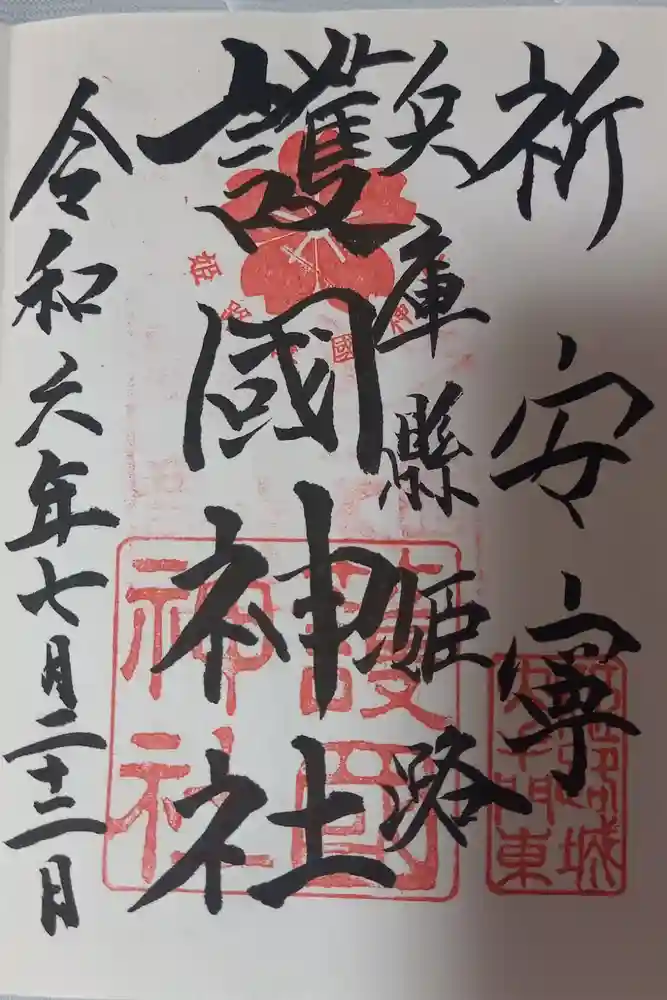 祈安寧
兵庫縣姫路
護國神社
令和六年七月二十二日
姫路護國神社
護国神社
城
大手門東